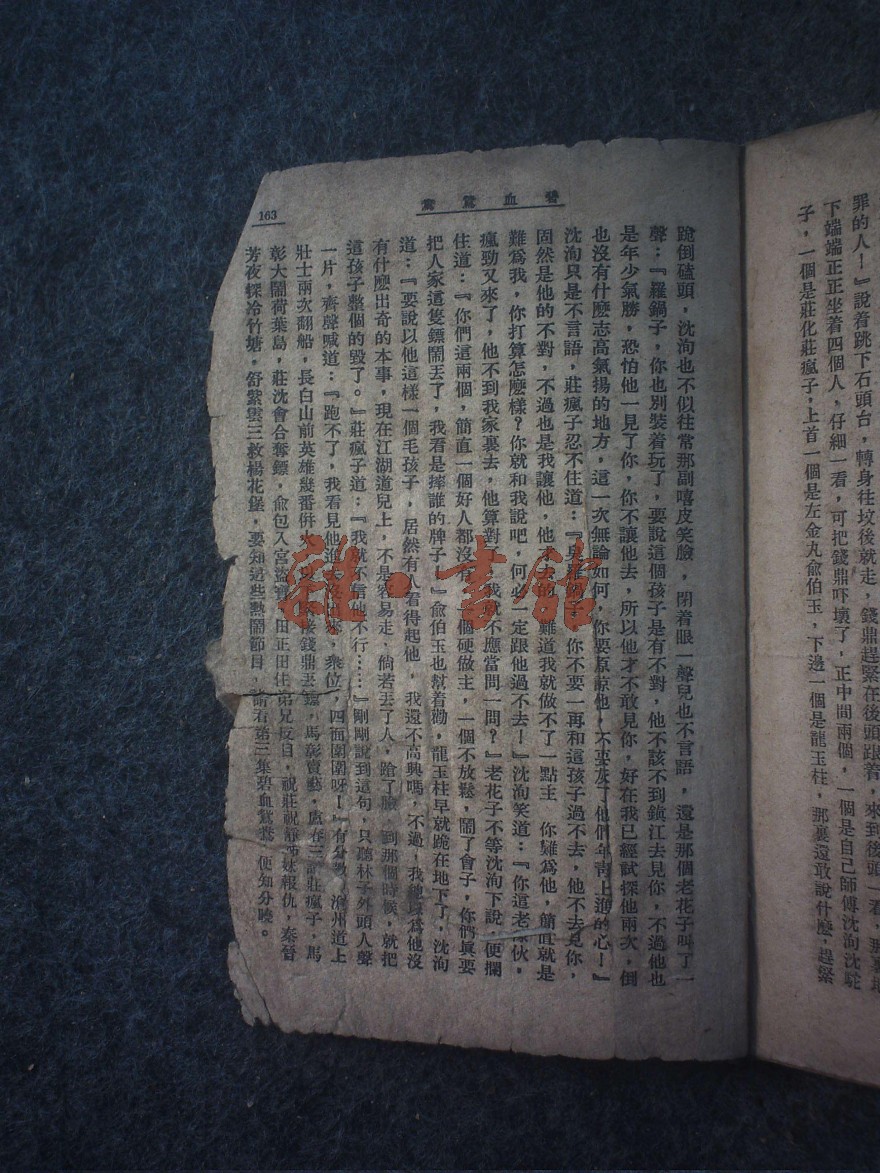 罪的人！』說着跳下石頭台，轉身往坟後就走，錢鼎趕緊在後頭跟着，來到後頭一看，那裏地
下端端正正坐着四個人，仔細一看，可把錢鼎吓壞了，正中間兩個，一個是自己師傅沈洵沈駝
子，一個是莊化莊瘋子，上首一個是左金丸俞伯玉，下邊一個是龍玉柱，那裏還敢說什麼，趕緊
碧血鴛鴦
163
跪倒磕頭，沈洵也不似往常那副嘻皮笑臉，閉着眼一聲兒也不言語，還是那個老花子叫了一
聲：『羅鍋子，你也別裝着玩了，要說這個孩子是有不對，他不該不到鎮江去見你，不過他也
是年少氣勝，恐怕他一見了你，你不讓他去，所以他才不敢見你，好在我已經試探他兩次，倒
也沒有什麼志高氣揚的地方，這一次無論如何，你要原諒他，不要灰了他們年青上進的心！』
沈洵只是不言語，莊瘋子忍不住道：『你不要一再和這孩子過不去，他不去見你，
固然是他的不對，不過也是我讓他，他不去的，難道我就做不了一點主　你難爲他，簡直就是
難爲我，你打算怎麼樣？你就和我說吧，何必一定跟他過不去！』沈洵笑道：『你這老傢伙，
瘋勁又來了，他不到我家裏去，他算對，我就不應當問一問？』老花子不等沈洵下說，便攔
住道：『你們這兩個，簡直一個好人都沒有，一個硬做主，一個不放鬆，鬧了會子，你們眞要
把人家這隻鏢鬧丟了，我看是摔誰的牌子！』俞伯玉也幫着勸，龍玉柱早就跪在地下了，沈洵
道：『要說以他這樣一個毛孩子，居然有人看得起他，我還不高興嗎，不過，我總以爲他沒
有什麼出奇的本事，現在江湖道兒上，不是容易走，倘若丟了人，跄了臉，到那個時候，就把
這孩子整個的毀了。』莊瘋子道：『我就不信他不行……』剛剛說到這句，只聽林子外頭人聲
一片，齊聲喊道：『跑不了，我看見他進　衆位，四面圍圍呀！』有分敎，滄州道上
壯士兩次翻船，長白山前英雄幾番併　後錢鼎丟鏢，馬彰賣藝，盧春三　莊瘋子，馬
彰大鬧荷葉島，莊沈會合奪鏢，俞包入宮盜寶，田正田住弟兄反目，祝莊祝靜姊妹報仇，秦晉
芳夜探冷竹塘，舒紫雲三救楊花堡，要知這些熱鬧節目，請看第三集碧血鴛鴦，便知分曉。
雜·書館